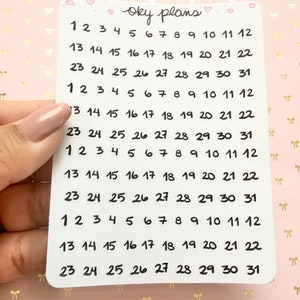 oky plans
1 2 3 4 5 6 7 8 9 10 11 12
13 14 15 16 17 18 19 20 21 22
23 24 25 26 27 28 29 30 31
1 2 3 4 5 6 7 8 9 10 11 12
13 14 15 16 17 18 19 20 21 22
23 24 25 26 27 28 29 30 31
1 2 3 4 5 6 7 8 9 10 11 12
13 14 15 16 17 18 19 20 21 22
23 24 25 26 27 28 29 30 31
1 2 3 4 5 6 7 8 9 10 11 12
13 14 15 16 17 18 19 20 21 22
23 24 25 26 27 28 29 30 31